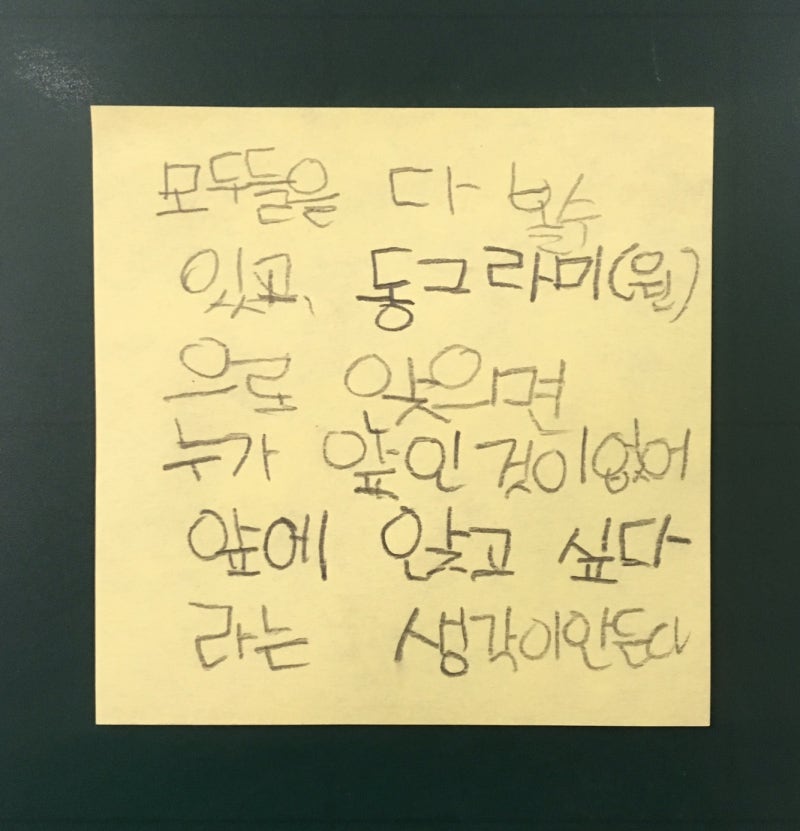 모두들을 다 볼수
있고, 동그라미(원)
으로 앚으면
누가 앞인 것이 없어
앞에 앉고 싶다
라는 생각이 안든다